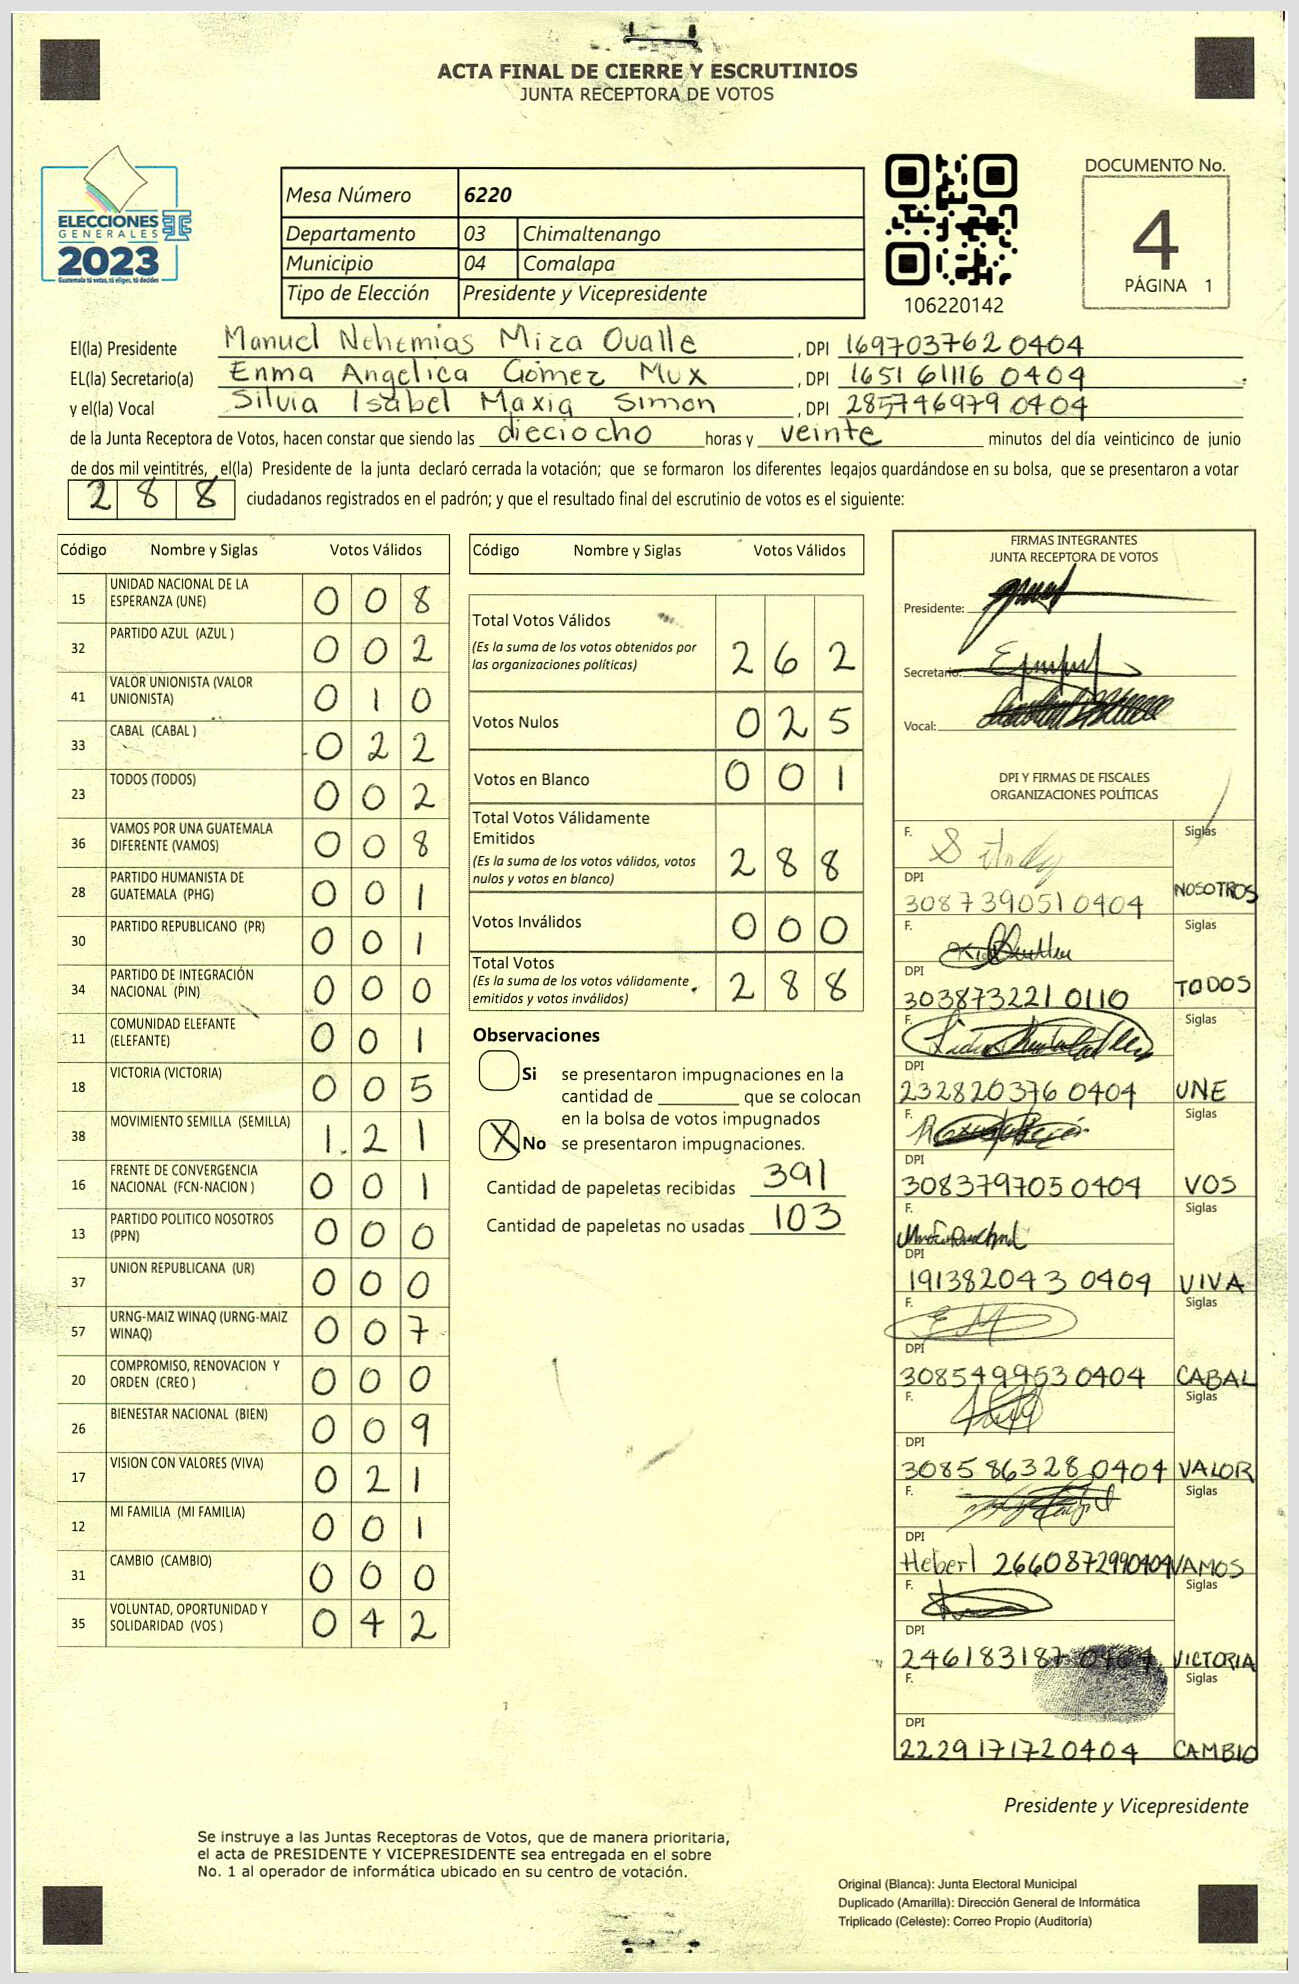 ACTA FINAL DE CIERRE Y ESCRUTINIOS
JUNTA RECEPTORA DE VOTOS
ELECCIONES
GENERALES
2023
Guatemala tú votas, tú eliges, tú decides
Mesa Número 6220
Departamento 03 Chimaltenango
Municipio 04 Comalapa
Tipo de Elección Presidente y Vicepresidente
106220142
DOCUMENTO No.
4
PÁGINA 1
El(la) Presidente Manuel Nehemias Miza Ovalle, DPI 169703762 0404
EL(la) Secretario(a) Enma Angelica Gómez Mux, DPI 1651 61116 0404
y el(la) Vocal Silvia Isabel Maxia Simon, DPI 285746979 0404
de la Junta Receptora de Votos, hacen constar que siendo las dieciocho horas y veinte minutos del día veinticinco de junio
de dos mil veintitrés, el(la) Presidente de la junta declaró cerrada la votación; que se formaron los diferentes legajos quardándose en su bolsa, que se presentaron a votar
288 ciudadanos registrados en el padrón; y que el resultado final del escrutinio de votos es el siguiente:
Código Nombre y Siglas Votos Válidos
15 UNIDAD NACIONAL DE LA ESPERANZA (UNE) 008
32 PARTIDO AZUL (AZUL ) 002
41 VALOR UNIONISTA (VALOR UNIONISTA) 010
33 CABAL (CABAL ) 022
23 TODOS (TODOS) 002
36 VAMOS POR UNA GUATEMALA DIFERENTE (VAMOS) 008
28 PARTIDO HUMANISTA DE GUATEMALA (PHG) 001
30 PARTIDO REPUBLICANO (PR) 001
34 PARTIDO DE INTEGRACIÓN NACIONAL (PIN) 000
11 COMUNIDAD ELEFANTE (ELEFANTE) 001
18 VICTORIA (VICTORIA) 005
38 MOVIMIENTO SEMILLA (SEMILLA) 1.21
16 FRENTE DE CONVERGENCIA NACIONAL (FCN-NACION ) 001
13 PARTIDO POLITICO NOSOTROS (PPN) 000
37 UNION REPUBLICANA (UR) 000
57 URNG-MAIZ WINAQ (URNG-MAIZ WINAQ) 007
20 COMPROMISO, RENOVACION Y ORDEN (CREO ) 000
26 BIENESTAR NACIONAL (BIEN) 009
17 VISION CON VALORES (VIVA) 021
12 MI FAMILIA (MI FAMILIA) 001
31 CAMBIO (CAMBIO) 000
35 VOLUNTAD, OPORTUNIDAD Y SOLIDARIDAD (VOS ) 042
Código Nombre y Siglas Votos Válidos
Total Votos Válidos 262
(Es la suma de los votos obtenidos por
las organizaciones políticas)
Votos Nulos 025
Votos en Blanco 001
Total Votos Válidamente
Emitidos 288
(Es la suma de los votos válidos, votos
nulos y votos en blanco)
Votos Inválidos 000
Total Votos 288
(Es la suma de los votos válidamente
emitidos y votos inválidos)
Observaciones
Si se presentaron impugnaciones en la
cantidad de ________ que se colocan
en la bolsa de votos impugnados
X No se presentaron impugnaciones.
Cantidad de papeletas recibidas 391
Cantidad de papeletas no usadas 103
FIRMAS INTEGRANTES
JUNTA RECEPTORA DE VOTOS
Presidente:
Secretario:
Vocal:
DPI Y FIRMAS DE FISCALES
ORGANIZACIONES POLÍTICAS
F. Siglas
DPI
3087390510404 NOSOTROS
F. Siglas
DPI
303873221 0110 TODOS
F. Siglas
DPI
232820376 0404 UNE
F. Siglas
DPI
308379705 0404 VOS
F. Siglas
DPI
191382043 0404 VIVA
F. EM Siglas
DPI
308549953 0404 CABAL
F. Siglas
DPI
308586328 0404 VALOR
F. Siglas
DPI
Heberl 2660872990404 VAMOS
F. Siglas
DPI
246183187 VICTORIA
F. Siglas
DPI
2229171720404 CAMBIO
Presidente y Vicepresidente
Se instruye a las Juntas Receptoras de Votos, que de manera prioritaria,
el acta de PRESIDENTE Y VICEPRESIDENTE sea entregada en el sobre
No. 1 al operador de informática ubicado en su centro de votación.
Original (Blanca): Junta Electoral Municipal
Duplicado (Amarilla): Dirección General de Informática
Triplicado (Celeste): Correo Propio (Auditoría)